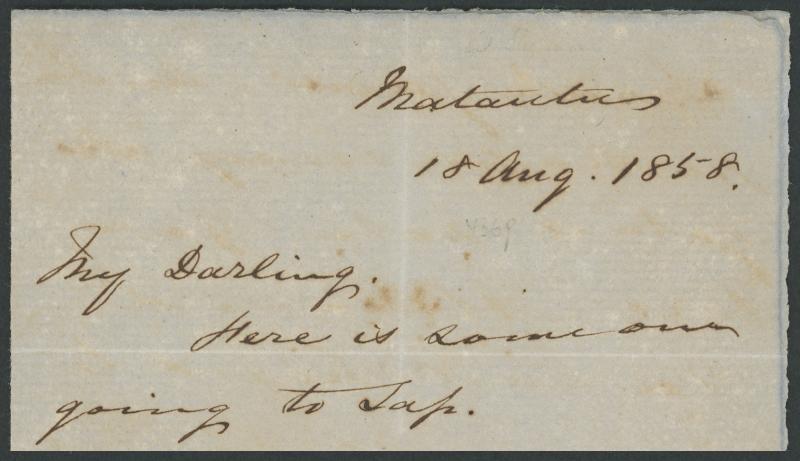 18 Aug. 1858.
My Darling.
Here is some one
going to